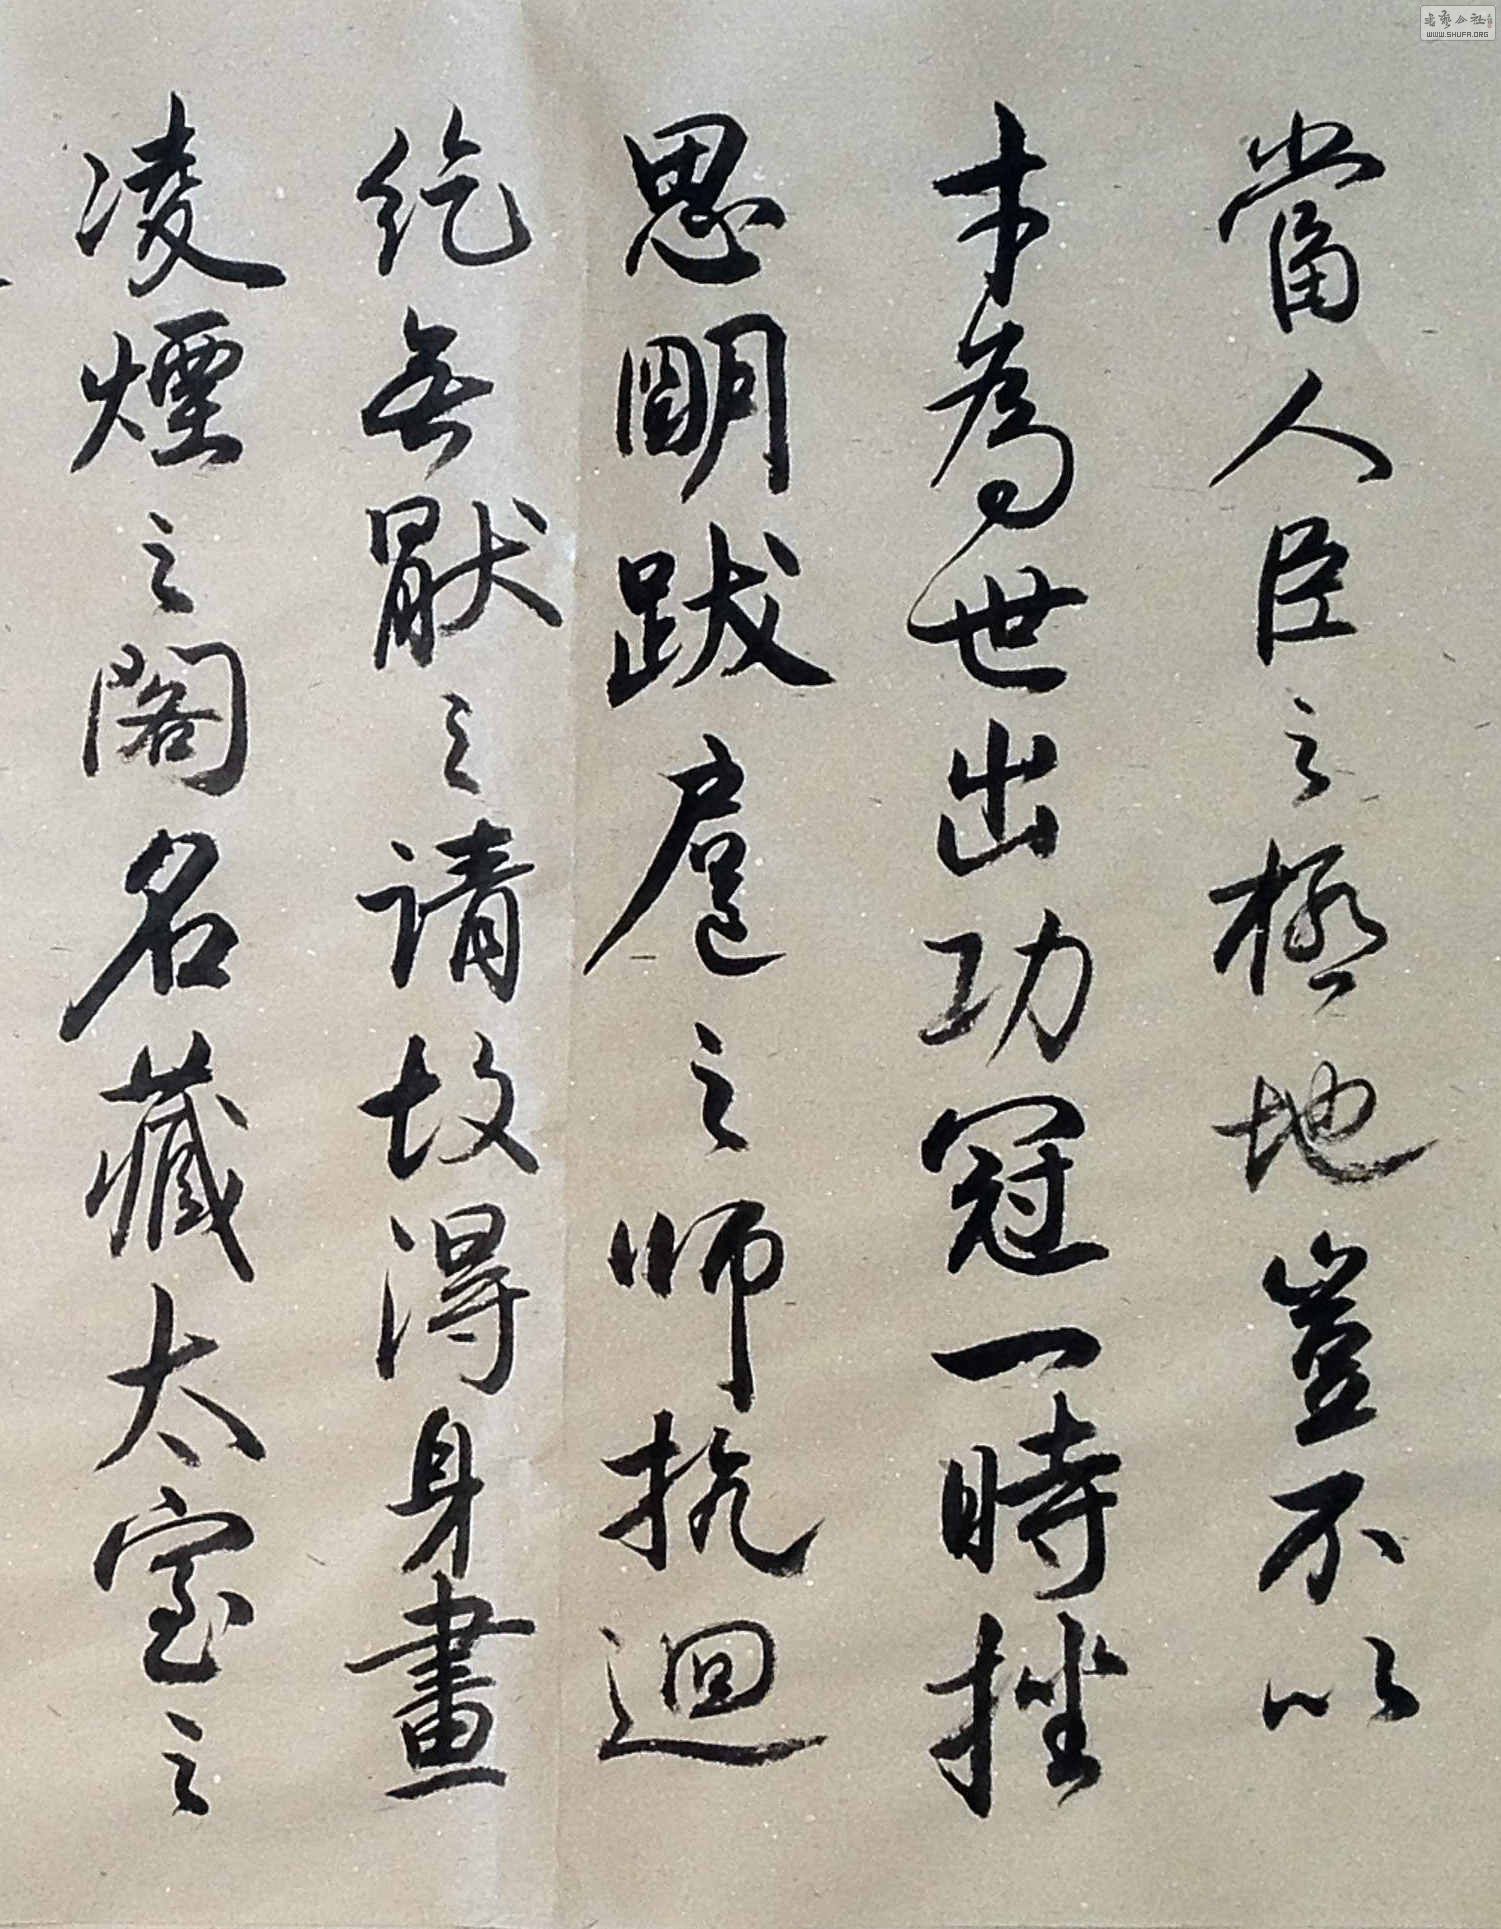 當人臣之極地豈不以
才為世出功冠一時挫
思明跋扈之師抗迴
紇無猒之請故得身畫
凌煙之閣名藏太室之
書藝公社
WWW.SHUFA.ORG